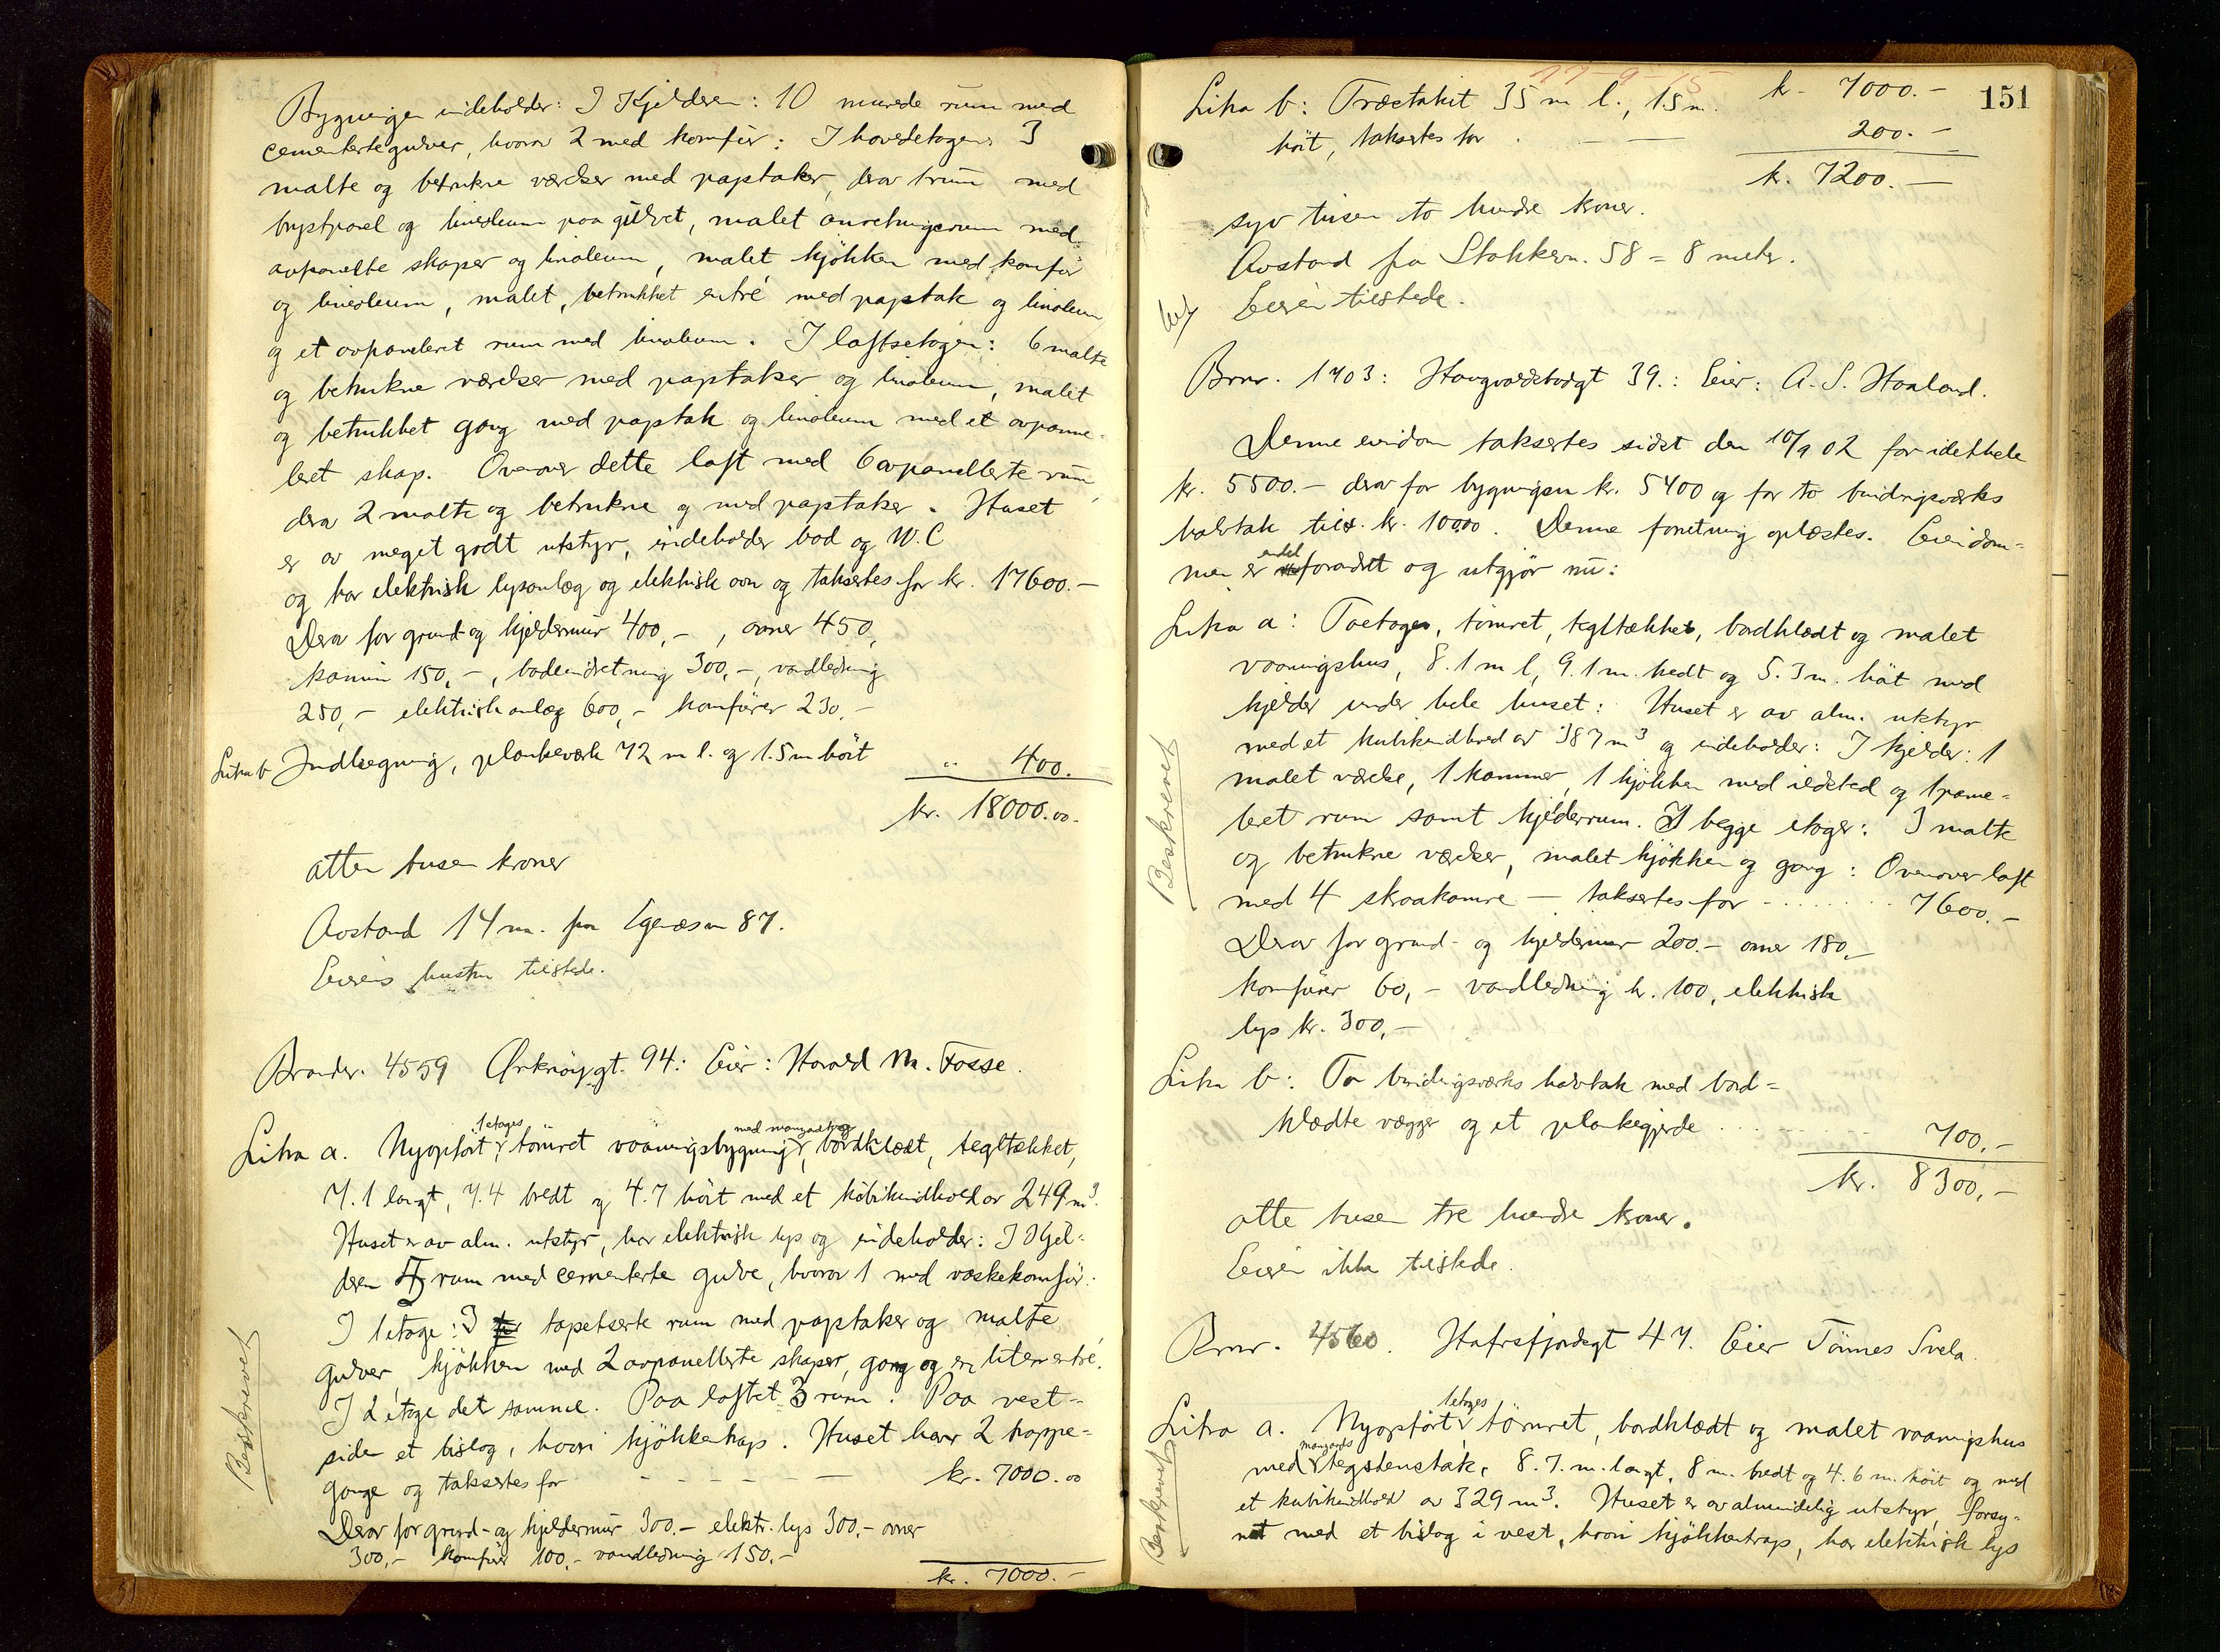 Bygningen indeholder: I Kjelderen: 10 murede rum med
cementerte gulver, hvorav 2 med komfür: I hovedetagen 3
malte og betrukne værelser med paptaker, derav 1 rum med
brystpanel og linoleum paa gulvet, malet anretningsrum med
avpanelte skaper og linoleum, malet kjökken med komfür
og linoleum, malet, betrukket entré med paptak og linoleum
og et avpaneleret rum med linoleum. I loftsetagen: 6 malte
og betrukne værelser med paptaker og linoleum, malet
og betrukket gang med paptak og linoleum med et avpane-
leret skap. Ovenover dette loft med 6 avpanellerte rum,
derav 2 malte og betrukne og med paptaker. Huset
er av meget godt utstyr, indeholder bad og W.C
og har elektrisk lysanlæg og elektrisk ovn og taksertes for kr. 17600.-
Derav for grund- og kjeldermur 400,-, ovner 450,
kamin 150,-, badeindretning 300,-, vandledning
250,- elektrisk anlæg 600,- komfürer 230.-
Litra b Indhegning, plankeverk 72 m l. og 1.5 m höit " 400.
kr. 18000.00.
atten tusen kroner
Avstand 14 m. fra Egenæsvn 87.
Eierens hustru tilstede.
Brandnr. 4559 Ørknöygt. 94: Eier: Harald M. Fosse.
1 etages med mansardtak og
Litra a. Nyopfört, tömret vaaningsbygning, bordklædt, tegltækket,
7.1 langt, 7.4 bredt og 4.7 höit med et kubikindhold av 249 m³.
Huset er av alm. utstyr, har elektrisk lys og indeholder: I Kjel-
deren 5 rum med cementerte gulve, hvorav 1 med vaskekomfür.
I 1 etage: 3 tapetserte rum med paptaker og malte
gulver, kjökken med 2 avpanellerte skaper, gang og en liten entré.
I 2 etage det samme. Paa loftet 3 rum. Paa vest-
siden et bislag, hvori kjökkentrap. Huset haver 2 trappe-
gange og taksertes for - - - - - kr. 7000.00
Derav for grund- og kjeldermur 300.- elektr. lys 300,- ovner
300,- komfür 100,- vandledning 150.-
kr. 7000.-
Beskrevet
17-9-15
151
Litra b: Træstakit 35 m l., 1.5 m. kr. 7000.-
höit, taksertes for - - 200.-
kr. 7200.-
syv tusen to hundre kroner.
Avstand fra Stokkavn. 58 = 8 meter.
Eieren tilstede.
Brnr. 1403: Haugvaldstadgt 39.: Eier: A. S. Haaland.
Denne eiendom taksertes sidst den 10/9 02 for idethele
kr. 5500.- derav for bygningen kr. 5400 og for to bindingsverks
halvtak tils. kr. 100.00. Denne forretning oplæstes. Eiendom-
men er endel forandret og utgjör nu:
Litra a: Toetages, tömret, tegltækket, bordklædt og malet
vaaningshus, 8.1 m l, 9.1 m. bredt og 5.3 m. höit med
kjelder under hele huset: Huset er av alm. utstyr
med et kubikindhold av 387 m³ og indeholder: I kjelder: 1
malet værelse, 1 kammer, 1 kjökken med ildsted og 1 pane-
leret rum samt kjelderrum. I begge etager: 3 malte
og betrukne værelser, malet kjökken og gang: Ovenover loft
med 4 skraakamre - taksertes for ........ 7600.-
Derav for grund- og kjeldermur 200.- ovner 180,-
komfürer 60,- vandledning kr. 100, elektrisk
lys kr. 300,-
Litra b: To bindingsverks halvtak med bord-
klædte vægger og et plankegjerde ........ 700.-
kr. 8300,-
otte tusen tre hundre kroner.
Eieren ikke tilstede.
Beskrevet
Brnr. 4560. Hafrsfjordsgt 47. Eier Tönnes Svela.
1 etages
Litra a. Nyopfört tömret, bordklædt og malet vaaningshus
mansards
med tegstenstak, 8.7. m. langt, 8 m. bredt og 4.6 m. höit og med
et kubikindhold av 329 m³. Huset er av almindelig utstyr, forsy-
net med et bislag i vest, hvori kjökkentrap, har elektrisk lys
Beskrevet